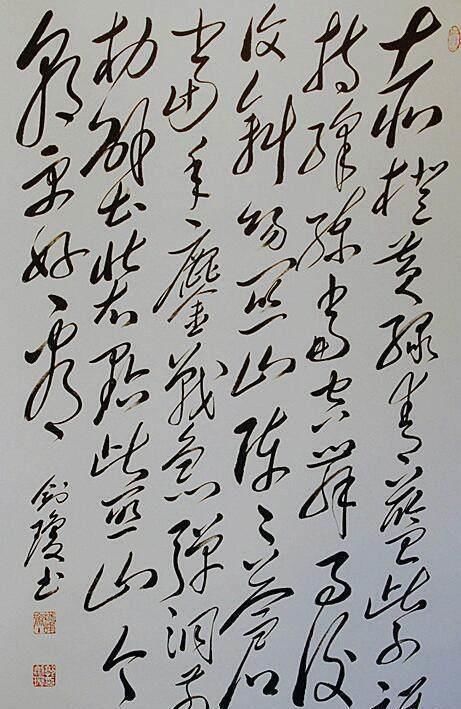 赤橙黃綠青藍紫誰
持彩練當空舞雨後
復斜陽關山陣陣蒼
當年鏖戰急彈洞前
村壁裝點此關山今
朝更好看
劍瓊書